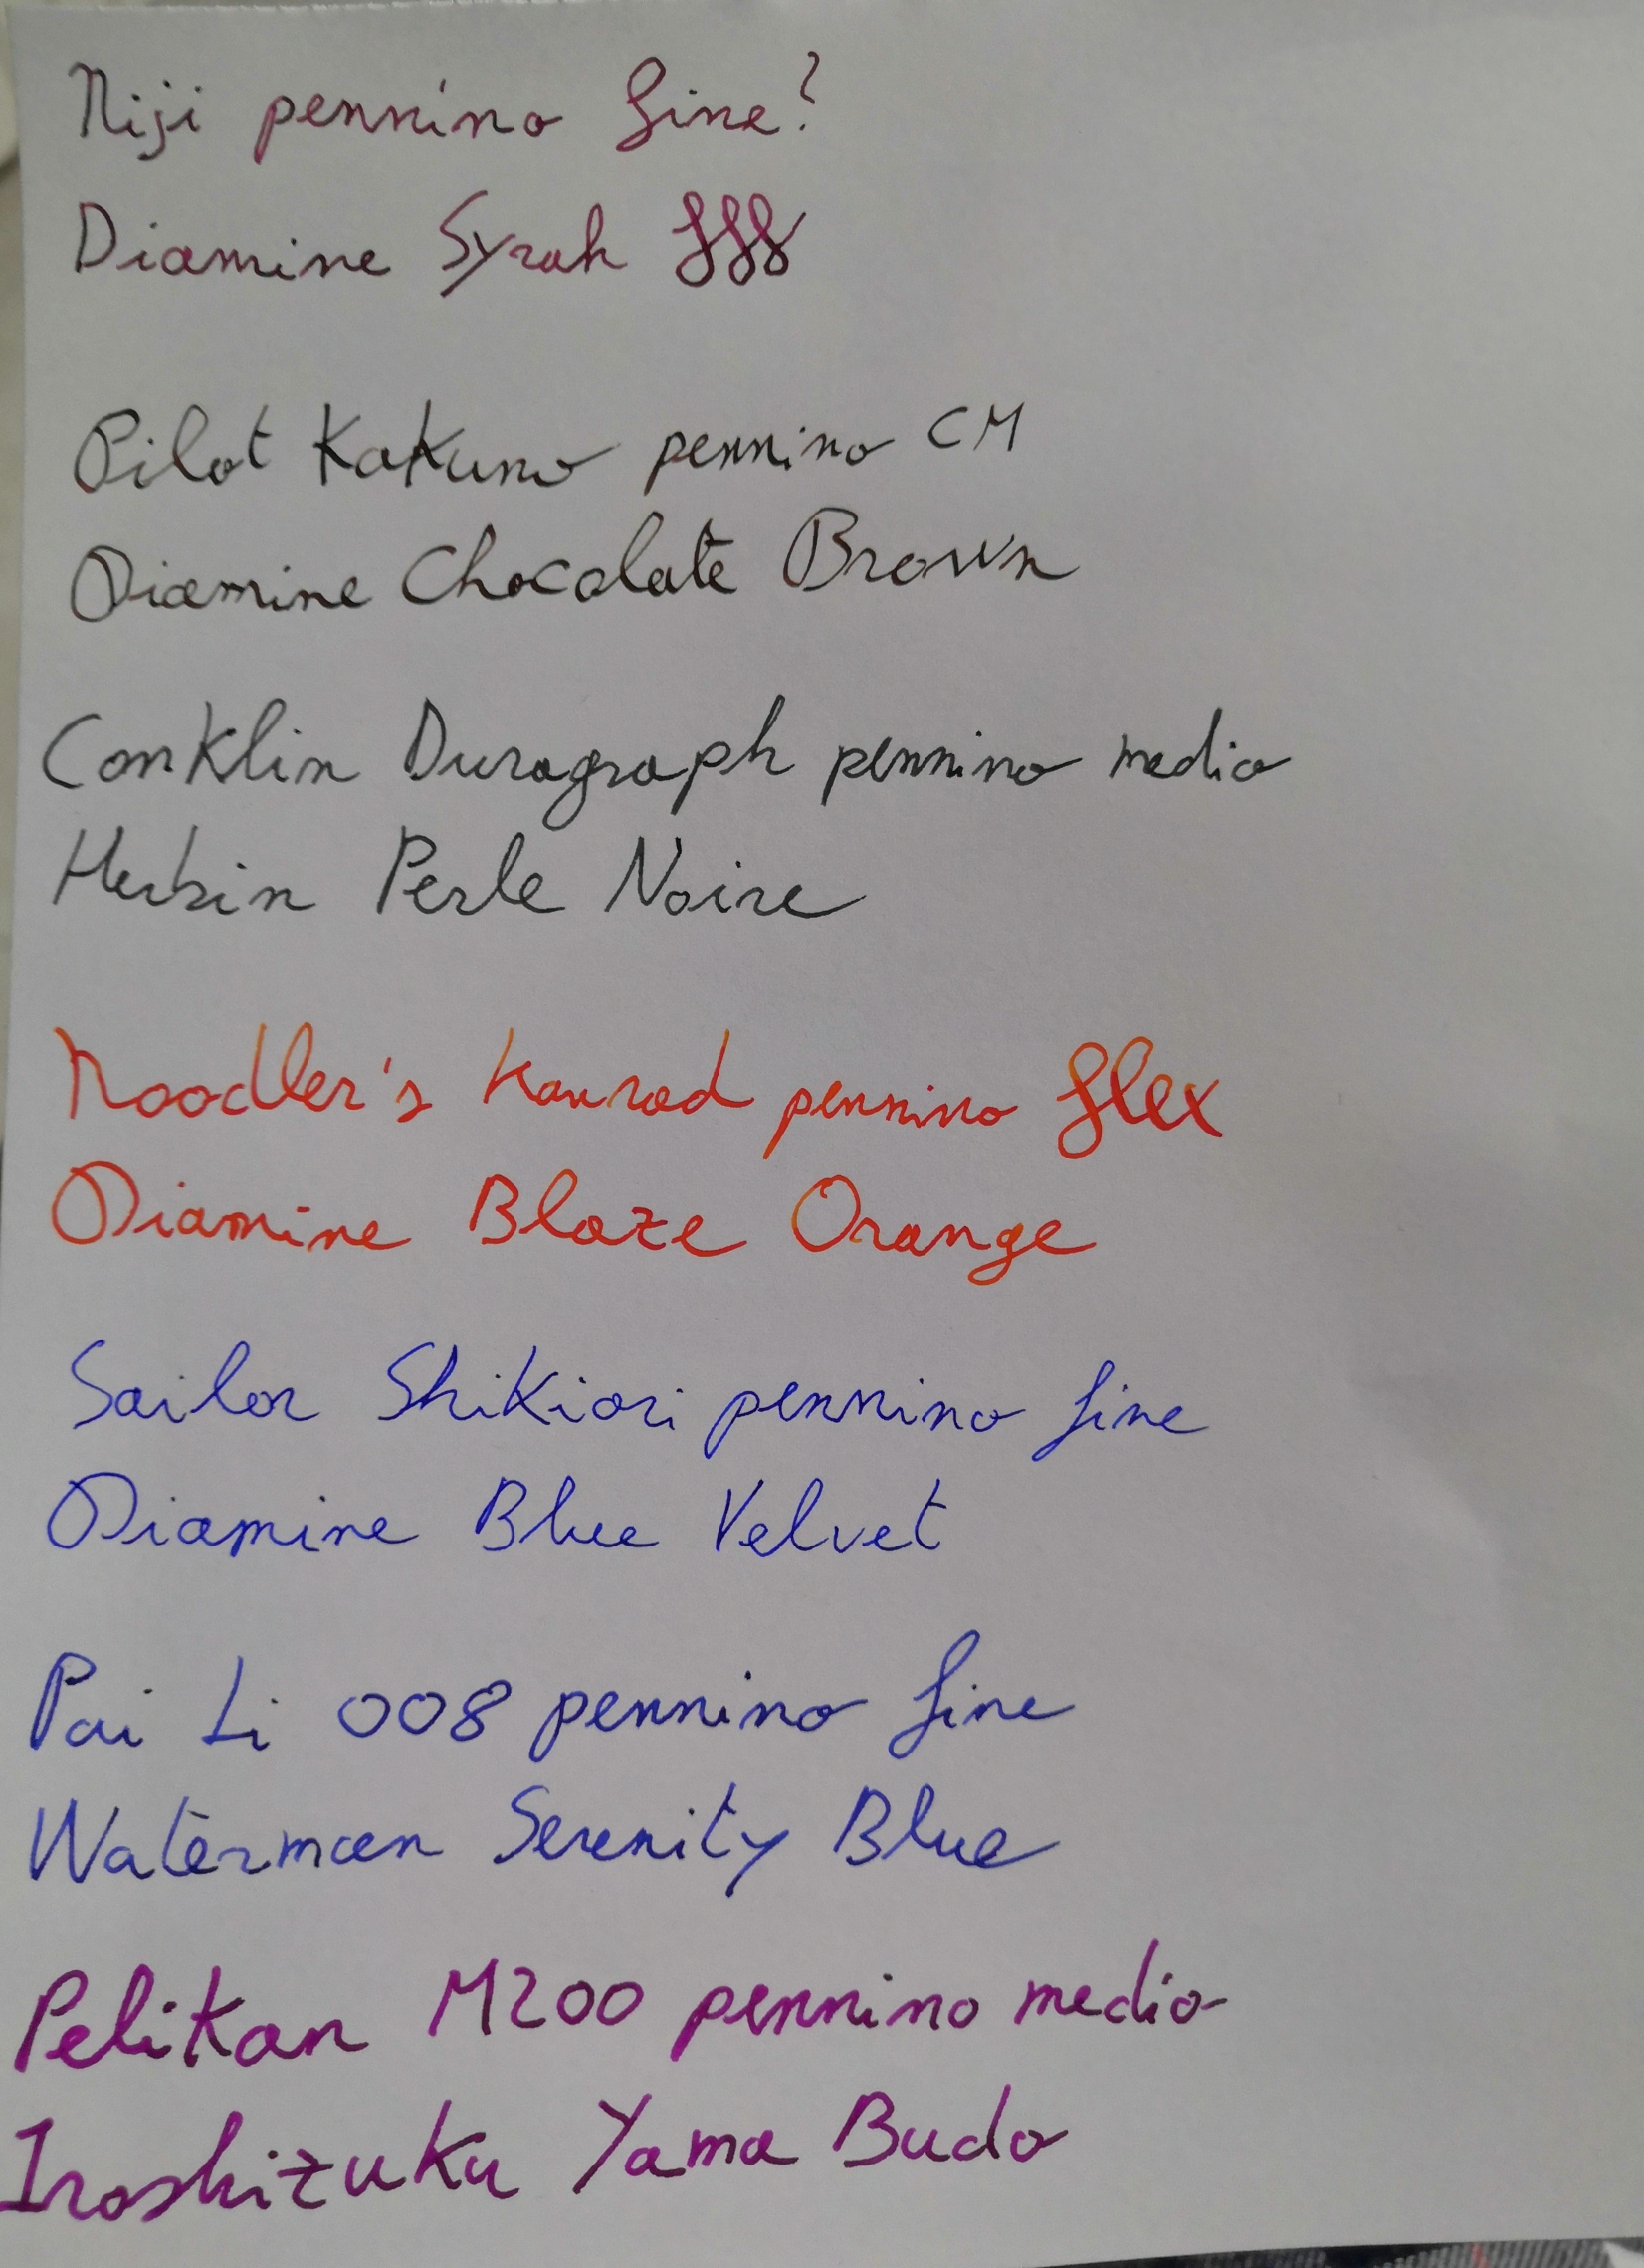 Niji pennino fine?
Diamine Syrah fff
Pilot Kakuno pennino CM
Diamine Chocolate Brown
Conklin Duragraph pennino medio
Herbin Perle Noire
Noodler's Konrad pennino flex
Diamine Blaze Orange
Sailor Shikiori pennino fine
Diamine Blue Velvet
Pai Li 008 pennino fine
Waterman Serenity Blue
Pelikan M200 pennino medio
Iroshizuku Yama Budo